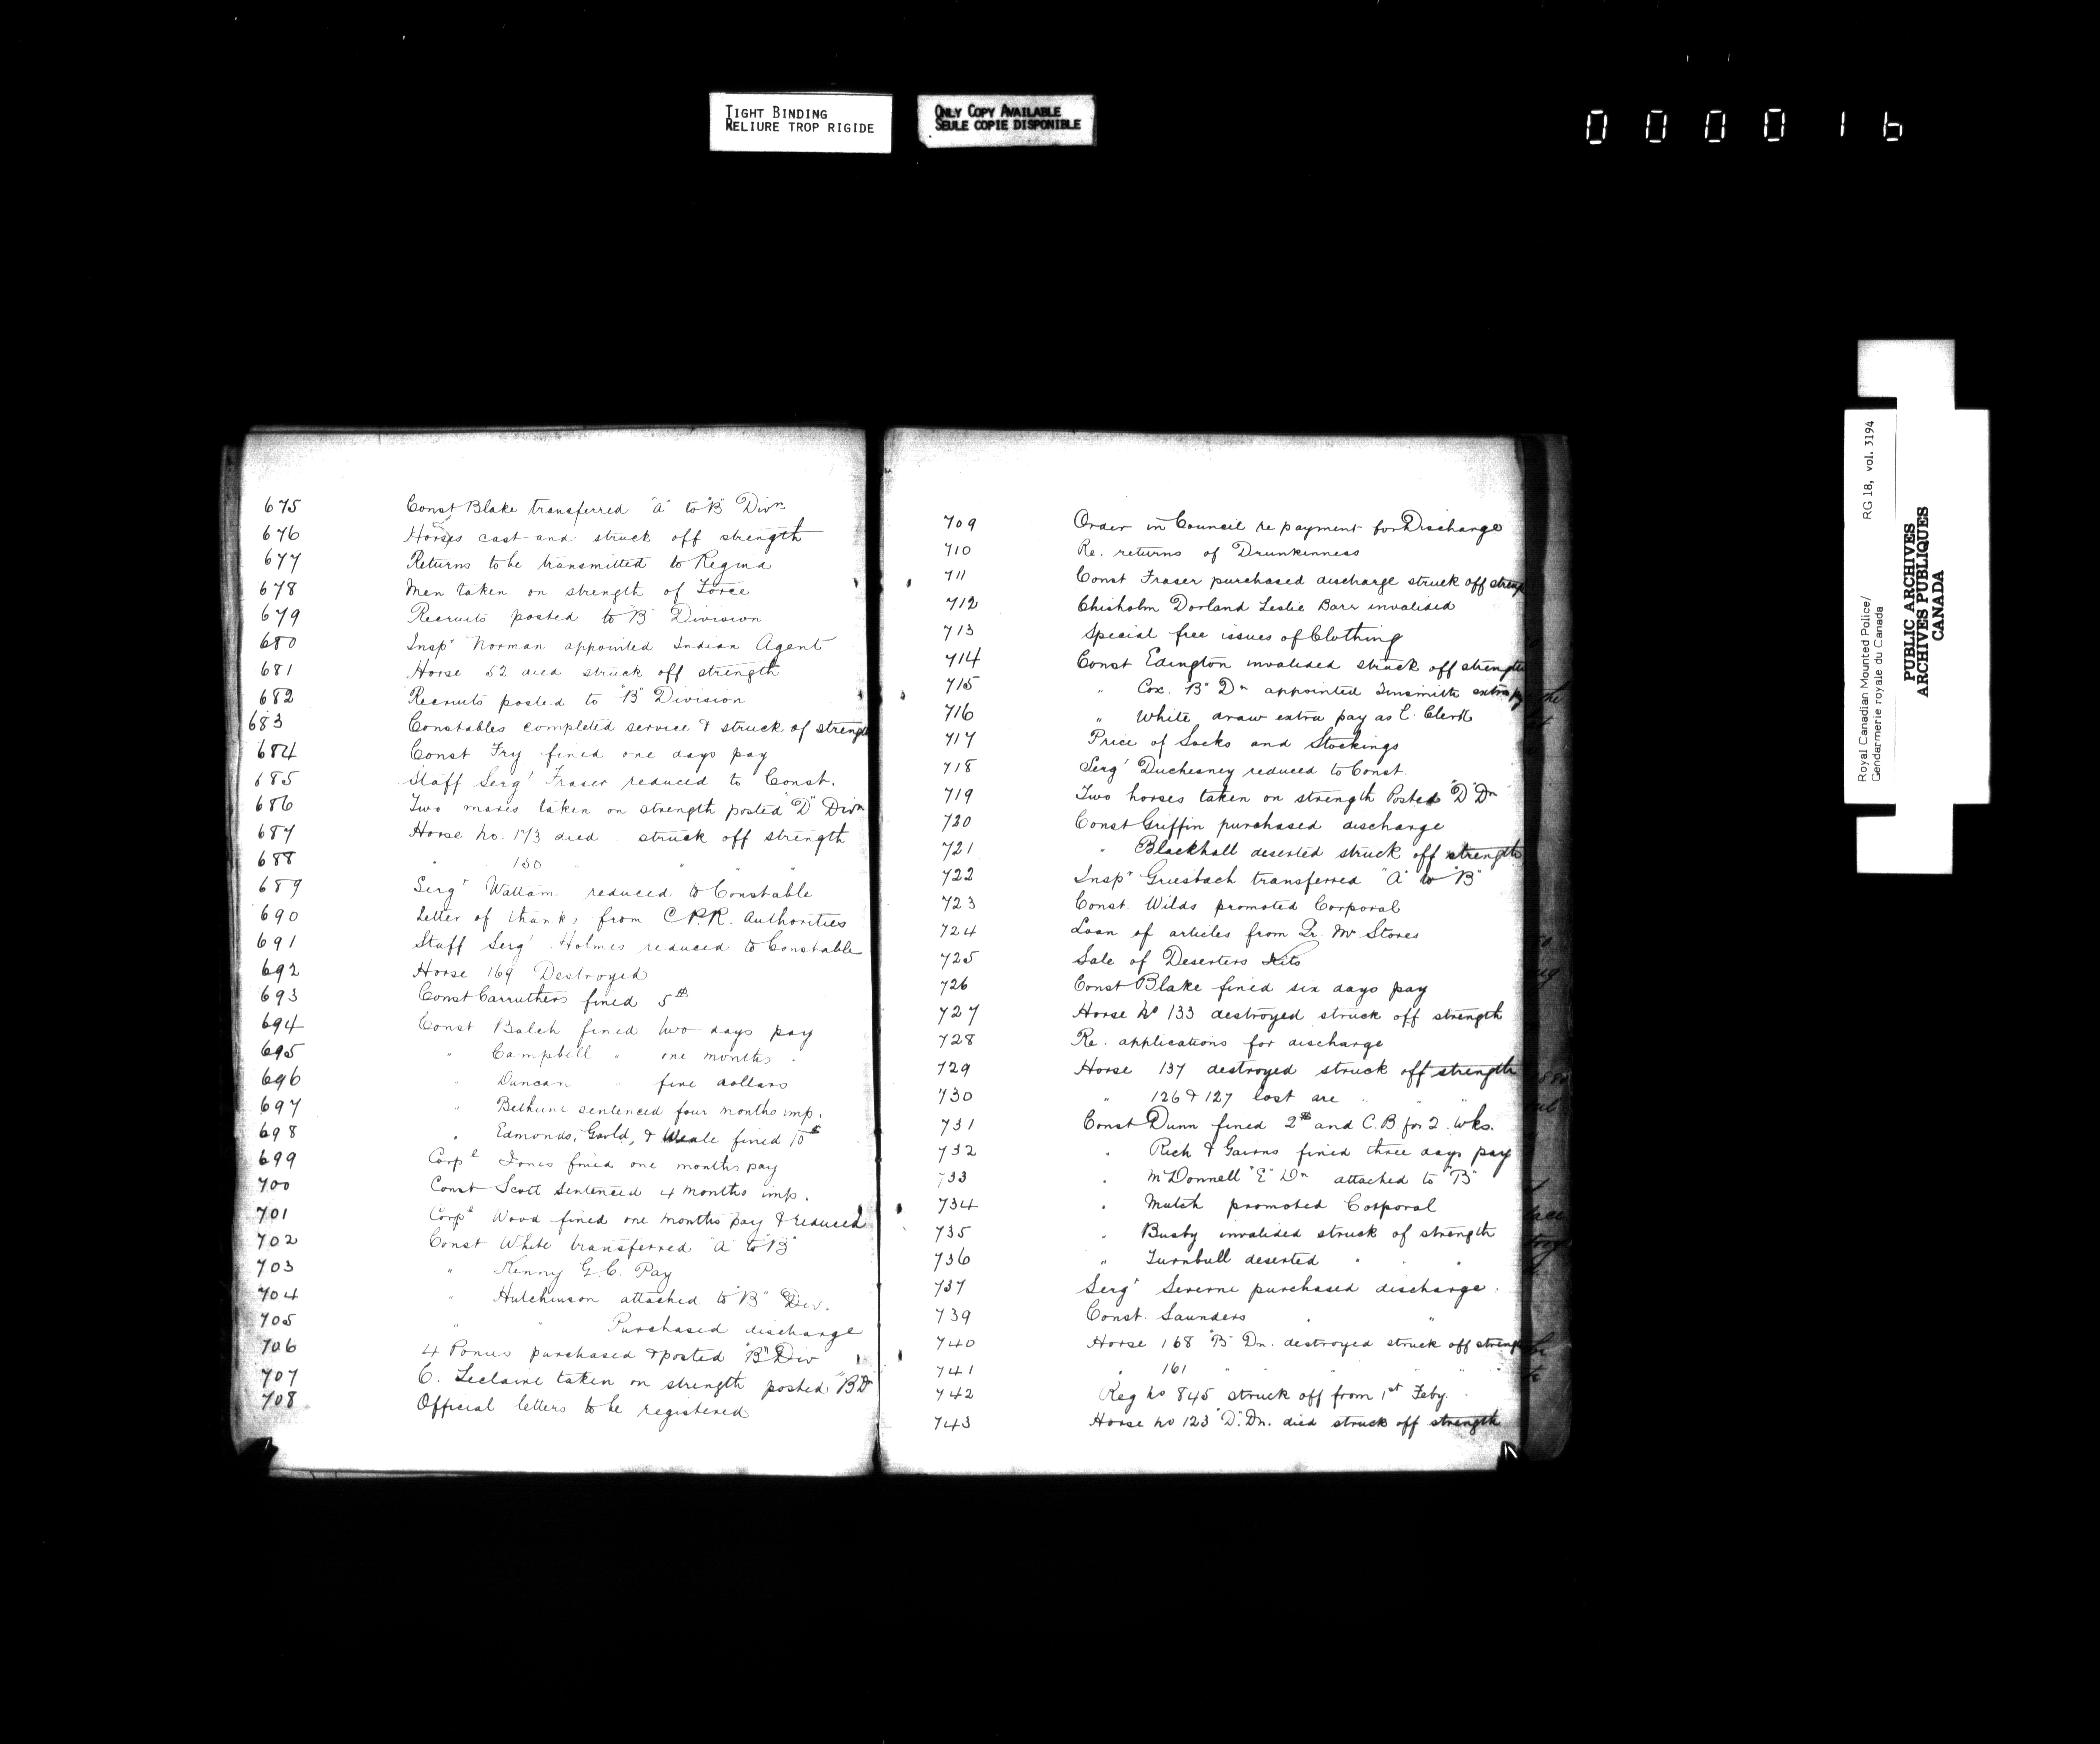 TIGHT BINDING
RELIURE TROP RIGIDE
ONLY COPY AVAILABLE
SEULE COPIE DISPONIBLE
0 0 0 0 1 6
675 Const Blake transferred "A" to "B" Divn
676 Horses cast and struck off strength
677 Returns to be transmitted to Regina
678 Men taken on strength of Force
679 Recruits posted to "B" Division
680 Inspr Norman appointed Indian Agent
681 Horse 52 died struck off strength
682 Recruits posted to "B" Division
683 Constables completed service & struck of strength
684 Const Fry fined one days pay
685 Staff Sergt Fraser reduced to Const.
686 Two mares taken on strength posted "D" Divn
687 Horse No. 173 died struck off strength
688 " 150 " "
689 Sergt Wattam reduced to Constable
690 Letter of thanks from C.P.R. Authorities
691 Staff Sergt Holmes reduced to Constable
692 Horse 169 Destroyed
693 Const Carruthers fined 5$
694 Const Balch fined two days pay
695 " Campbell " one months "
696 " Duncan " five dollars
697 " Bethune sentenced four months imp.
698 " Edmonds, Gold, & Weale fined 10$
699 Corpl Jones fined one months pay
700 Const Scott sentenced 4 months imp.
701 Corpl Wood fined one months pay & reduced
702 Const White transferred "A" to "B"
703 " Kenny G.C. Pay
704 " Hutchinson attached to "B" Div.
705 " " Purchased discharge
706 4 Ponies purchased & posted "B" Div
707 C. Leclaire taken on strength posted "B" D
708 Official letters to be registered
709 Order in Council re payment for Discharge
710 Re. returns of Drunkenness
711 Const Fraser purchased discharge struck off streng
712 Chisholm Dorland Leslie Barr invalided
713 Special free issues of Clothing
714 Const Edington invalided struck off strength
715 " Cox. "B" Dn appointed Tinsmith extra py
716 " White draw extra pay as C. Clerk
717 Price of Socks and Stockings
718 Sergt Duchesney reduced to Const.
719 Two horses taken on strength Posted "D" Dn
720 Const Griffin purchased discharge
721 " Blackhall deserted struck off strength
722 Inspr Griesbach transferred "A" to "B"
723 Const. Wilds promoted Corporal
724 Loan of articles from Qr. Mr Stores
725 Sale of Deserters Kits
726 Const Blake fined six days pay
727 Horse No 133 destroyed struck off strength
728 Re. applications for discharge
729 Horse 137 destroyed struck off strength
730 " 126 & 127 lost are " "
731 Const Dunn fined 2$ and C.B. for 2. wks.
732 " Rich & Gairns fined three days pay
733 " McDonnell "E" Dn attached to "B"
734 " Mutch promoted Corporal
735 " Busby invalided struck of strength
736 " Turnbull deserted " " "
737 Sergt Severne purchased discharge.
739 Const. Saunders " "
740 Horse 168 "B" Dn. destroyed struck off strength
741 " 161 " " " " "
742 Reg No 845 struck off from 1st Feby.
743 Horse No 123 "D". Dn. died struck off strength
Royal Canadian Mounted Police/ RG 18, vol. 3194
Gendarmerie royale du Canada
PUBLIC ARCHIVES
ARCHIVES PUBLIQUES
CANADA